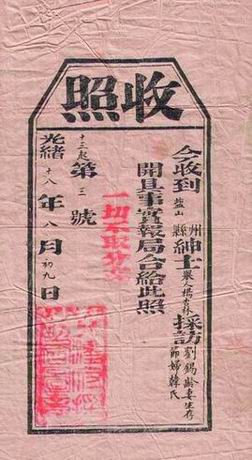 收照
今收到鹽山州縣紳士舉人楊書林採訪劉錫齡妻生存節婦韓氏
開具事實報局合給此照
一切不取分文
十三起第三號
光緒十八年八月初九日